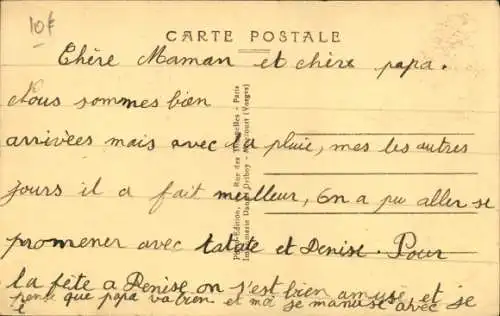 10f
CARTE POSTALE
Chère Maman et chère papa.
Nous sommes bien
arrivées mais avec la pluie, mes les autres
jours il a fait meilleur, on a pu aller se
promener avec tatate et Denise. Pour
la fête a Denise on s'est bien amusé et je
pense que papa va bien et moi je m'anuse avec
Rue des - Paris
Imprimerie Daniel (Vosges)